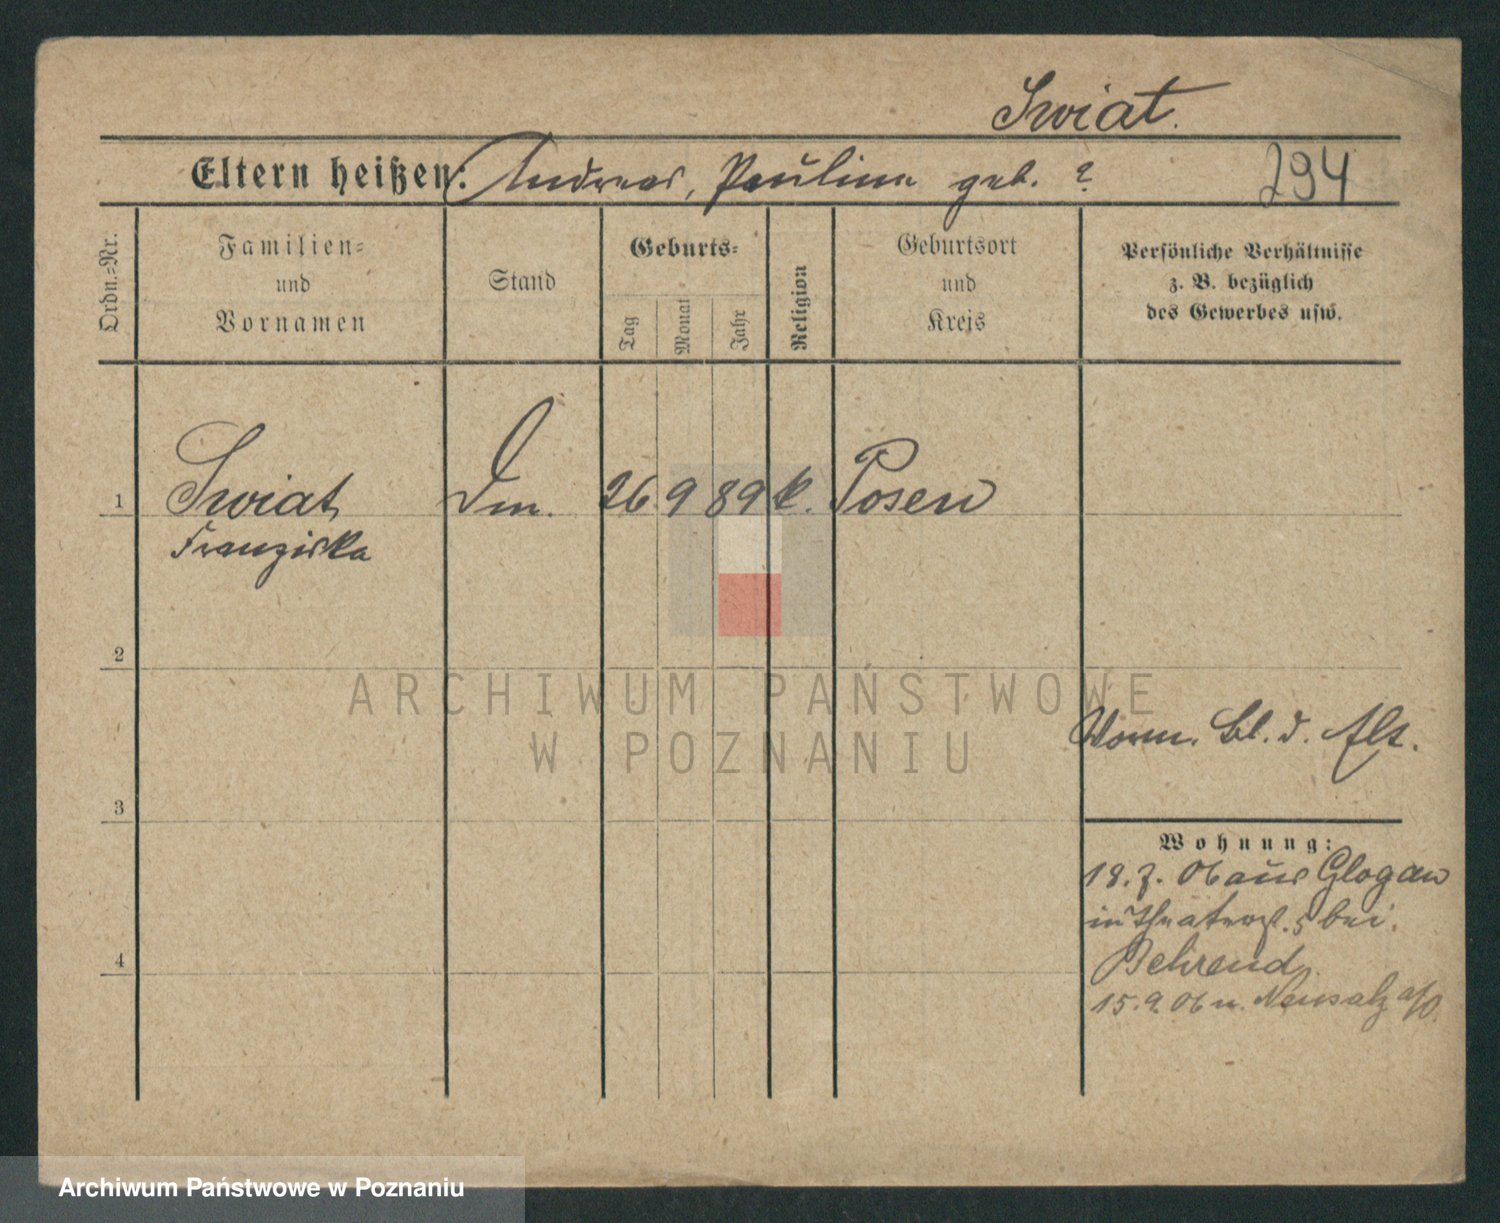 Swiat.
Eltern heißen: Andreas, Pauline geb. ?
294
Ordn.=Nr.
Familien=
und
Vornamen
Stand
Geburts=
Tag
Monat
Jahr
Religion
Geburtsort
und
Kreis
Persönliche Verhältnisse
z. B. bezüglich
des Gewerbes usw.
1
Swiat,
Franziska
26 9 89 k. Posen
2
ARCHIWUM PAŃSTWOWE
W POZNANIU
3
Wohnung:
18.7.06 aus Glogau
in Theaterst. 5 bei
Behrend,
15.9.06 n. Neusalz a/O.
4
Archiwum Państwowe w Poznaniu